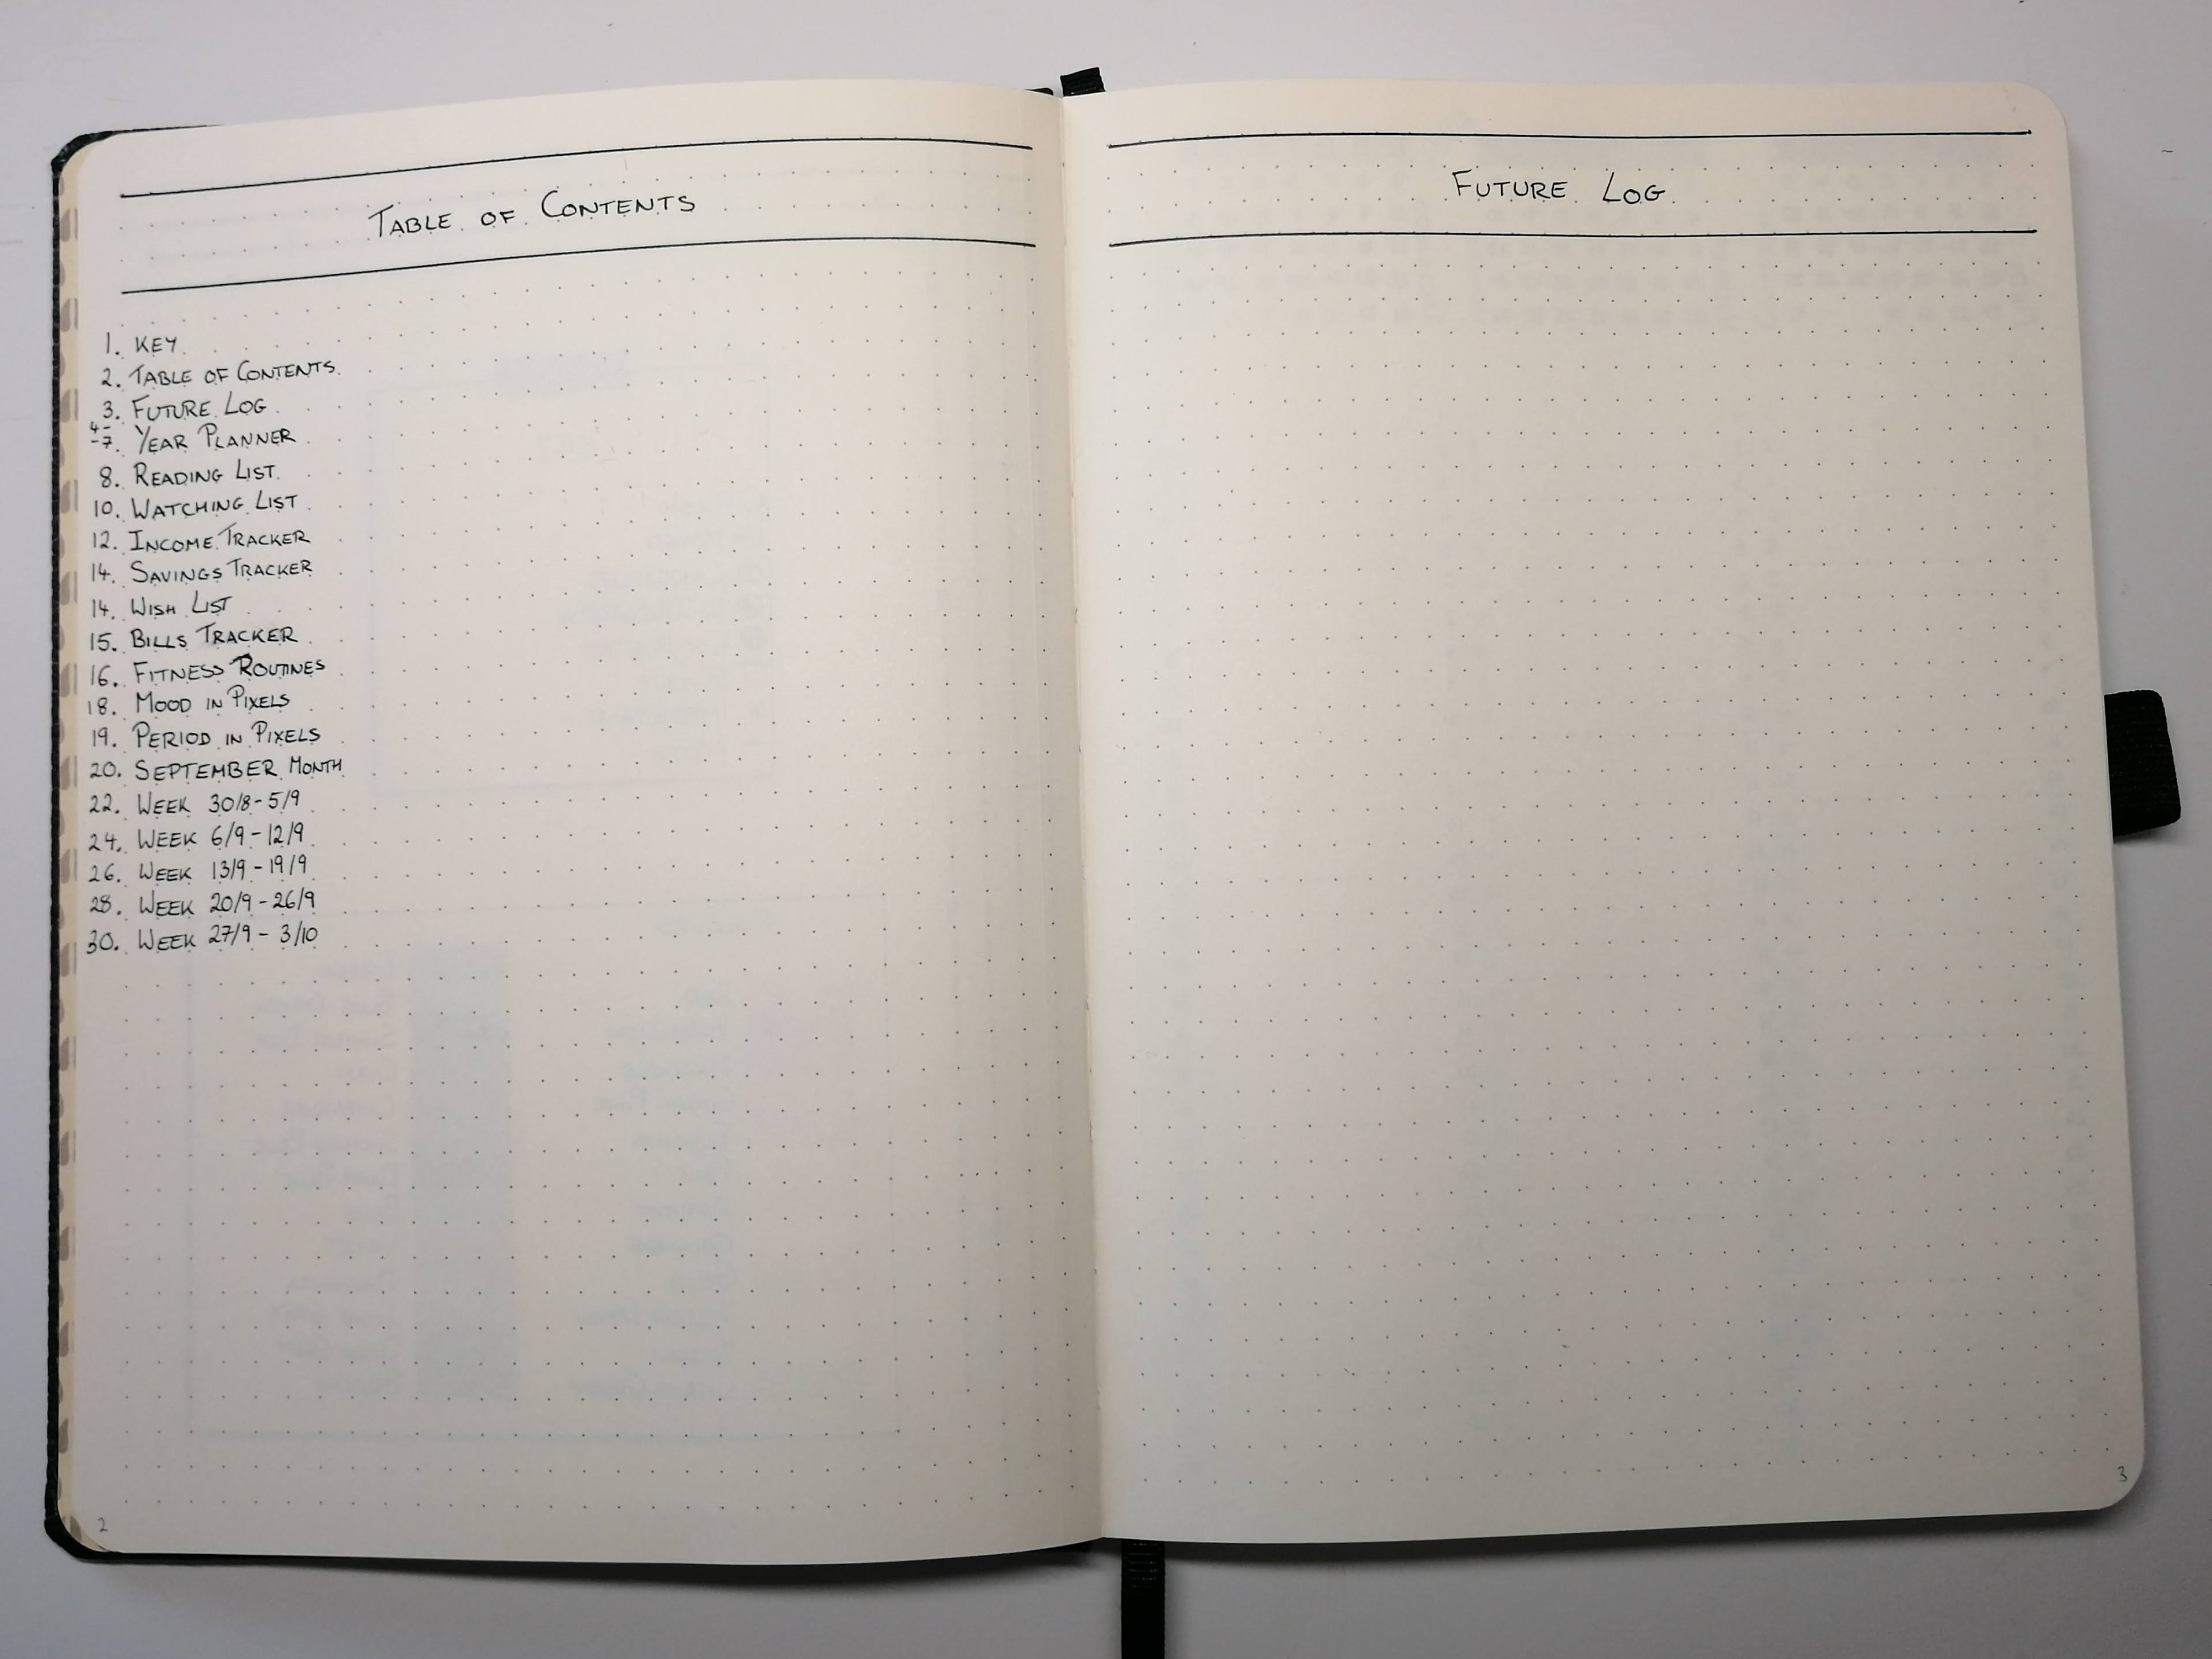 TABLE OF CONTENTS
1. KEY
2. TABLE OF CONTENTS
3. FUTURE LOG
4-
-7. YEAR PLANNER
8. READING LIST
10. WATCHING LIST
12. INCOME TRACKER
14. SAVINGS TRACKER
14. WISH LIST
15. BILLS TRACKER
16. FITNESS ROUTINES
18. MOOD IN PIXELS
19. PERIOD IN PIXELS
20. SEPTEMBER MONTH
22. WEEK 30/8-5/9
24. WEEK 6/9-12/9
26. WEEK 13/9-19/9
28. WEEK 20/9-26/9
30. WEEK 27/9-3/10
2
FUTURE LOG
3